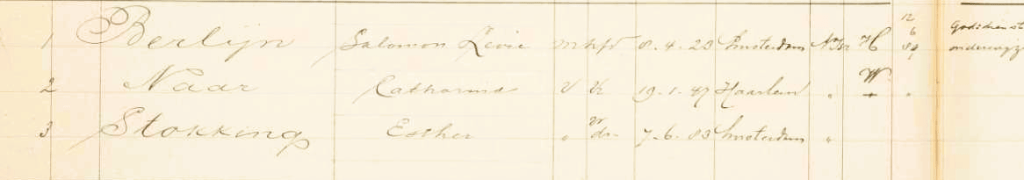 1 Berlijn Salomon Levie m hfd 8-4-23 Amsterdam N.Isr H 12 6 84 Godsdienst
2 Naar Catharina V Vr 19-1-47 Haarlem " W "
3 Stokking Esther " dr 7-6-83 Amsterdam "